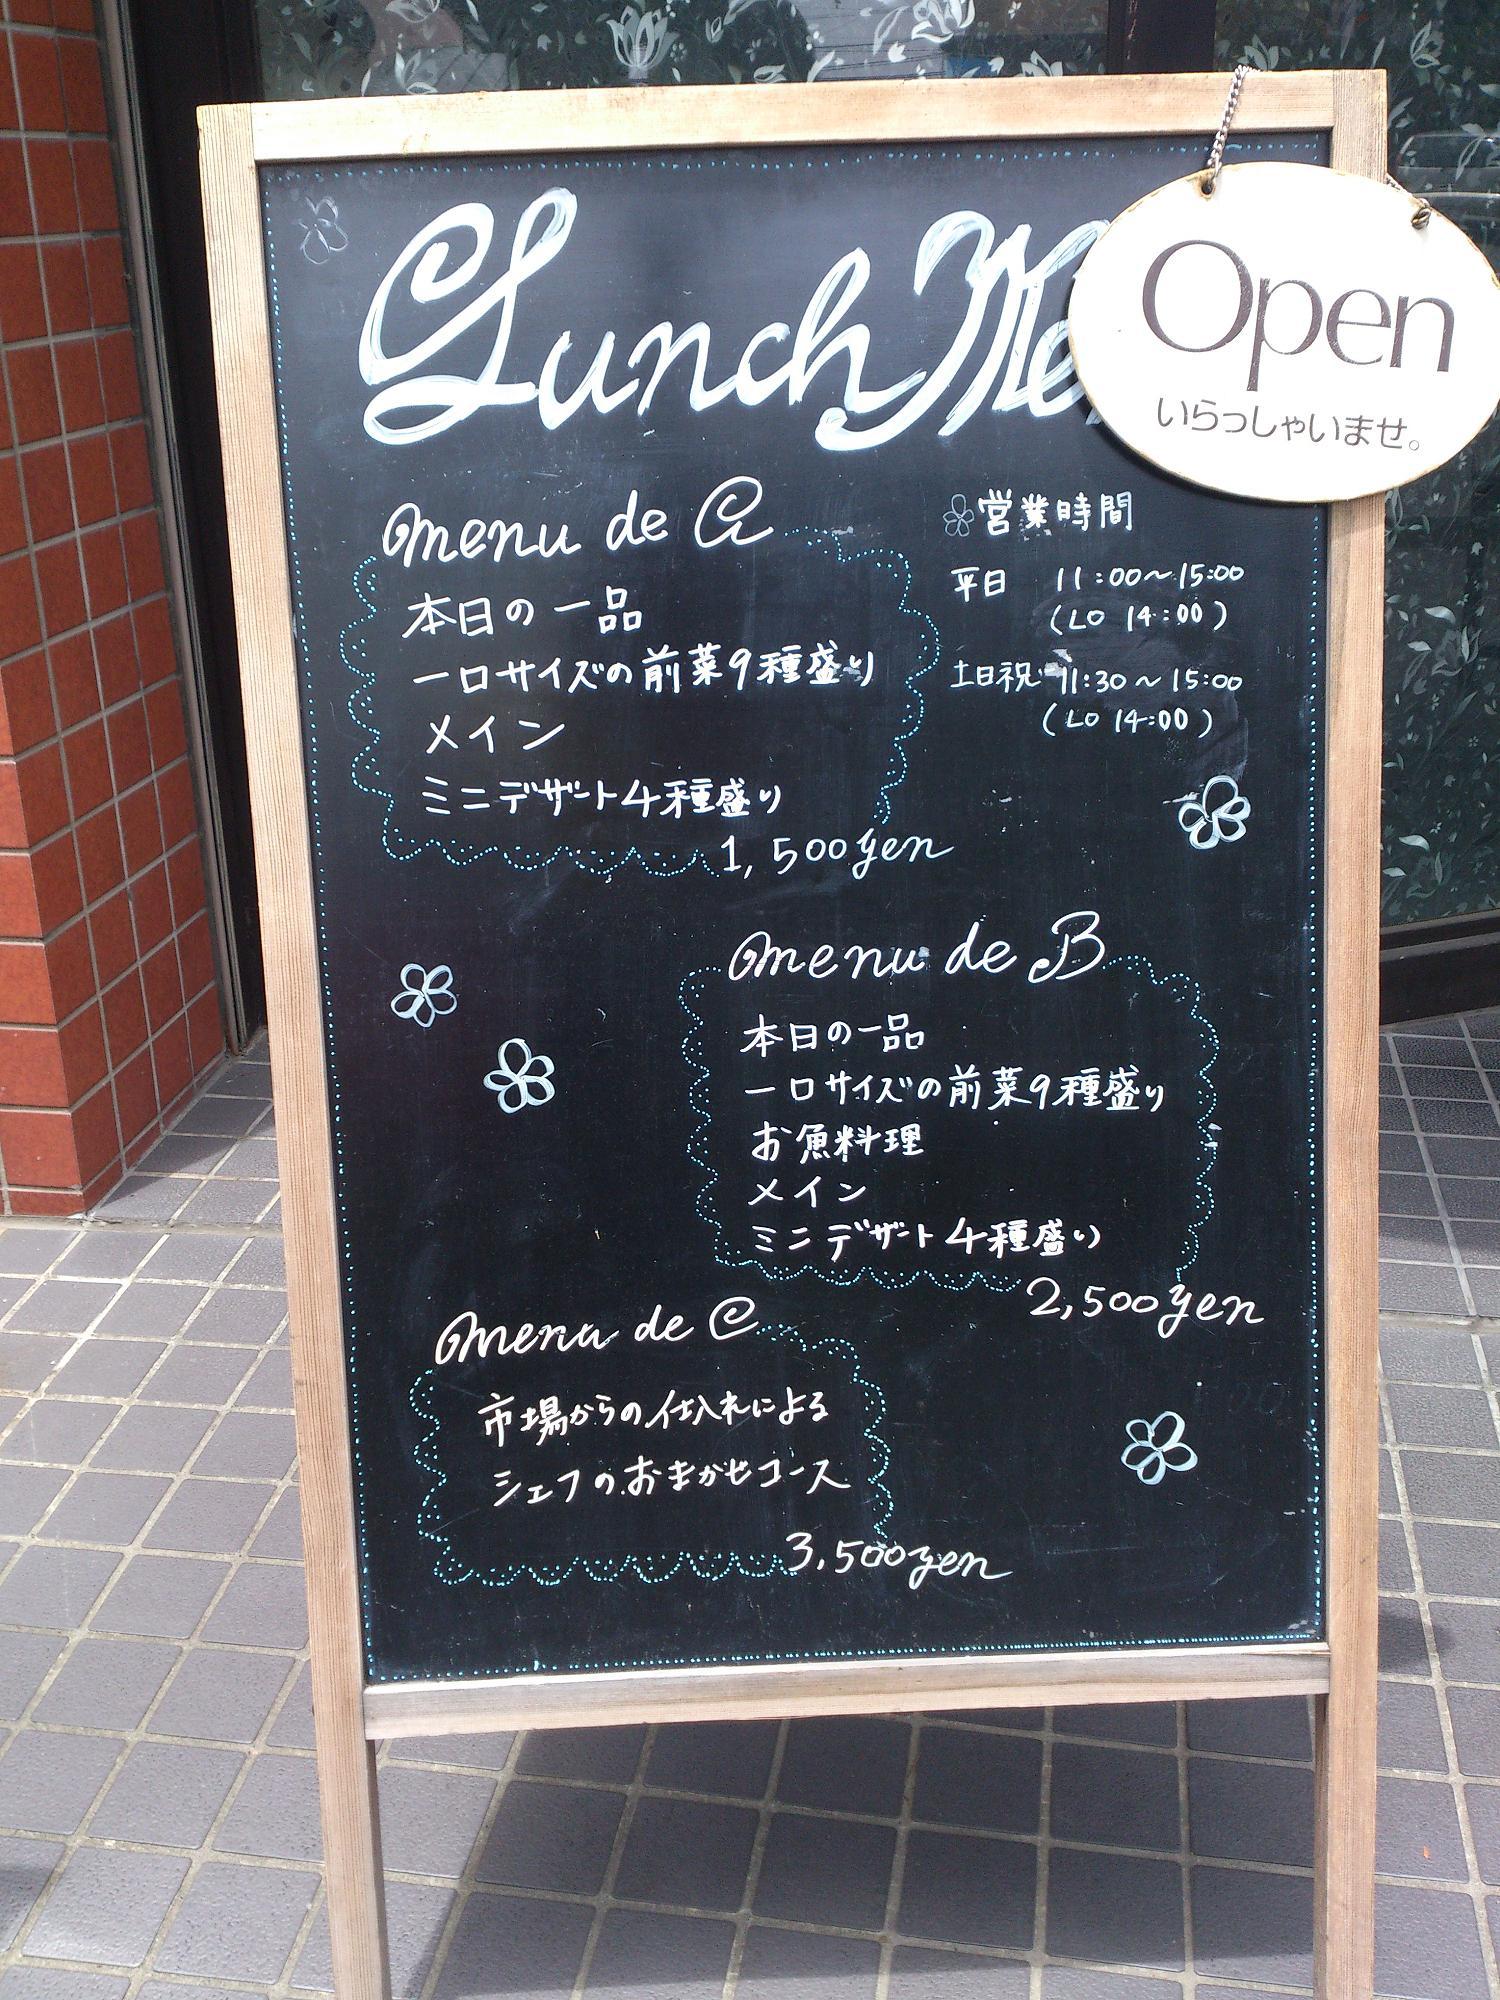 Lunch Me
Open
いらっしゃいませ。
menu de A
本日の一品
一口サイズの前菜9種盛り
メイン
ミニデザート4種盛り
1,500yen
営業時間
平日 11:00〜15:00
(LO 14:00)
土日祝 11:30〜15:00
(LO 14:00)
menu de B
本日の一品
一口サイズの前菜9種盛り
お魚料理
メイン
ミニデザート4種盛り
2,500yen
menu de C
市場からの仕入れによる
シェフのおまかせコース
3,500yen